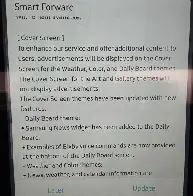 Smart Forward
[ Cover Screen ]
To enhance our service and offer additional content to
users, advertisements will be displayed on the Cover
Screen for the Weather, Color, and Daily Board themes.
The Cover Screen for the Art and Gallery themes will
not display advertisements.
The Cover Screen themes have been updated with new
features.
- Daily Board theme:
• Samsung News widget has been added to the Daily
Board.
• Examples of Bixby voice commands are now provided
at the bottom of the Daily Board screen.
- Weather and Color themes:
Later Update